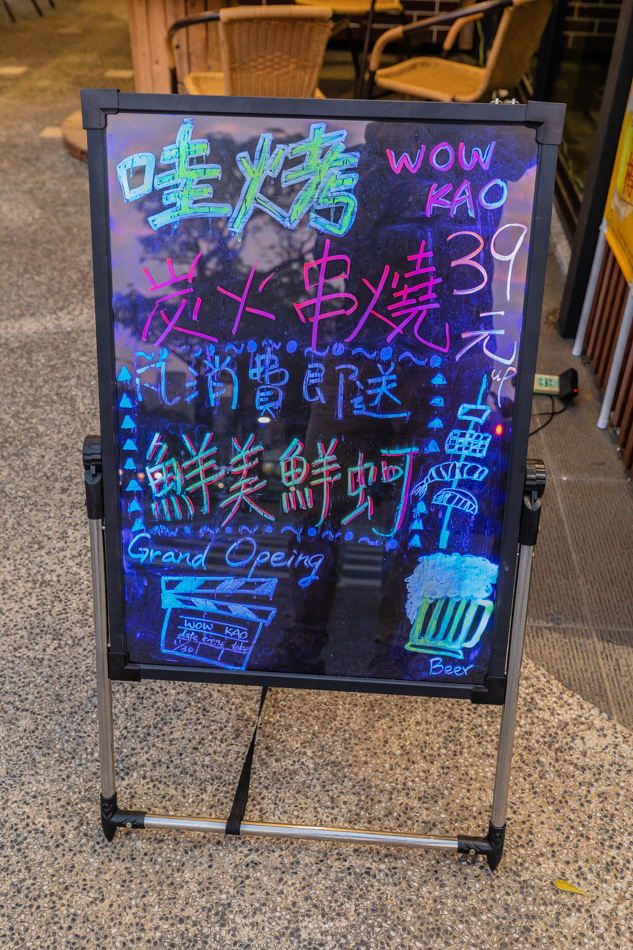 哇烤
WOW
KAO
炭火串燒
39
元
up
凡消費即送
鮮美鮮蚵
Grand Opeing
WOW KAO
date
Beer